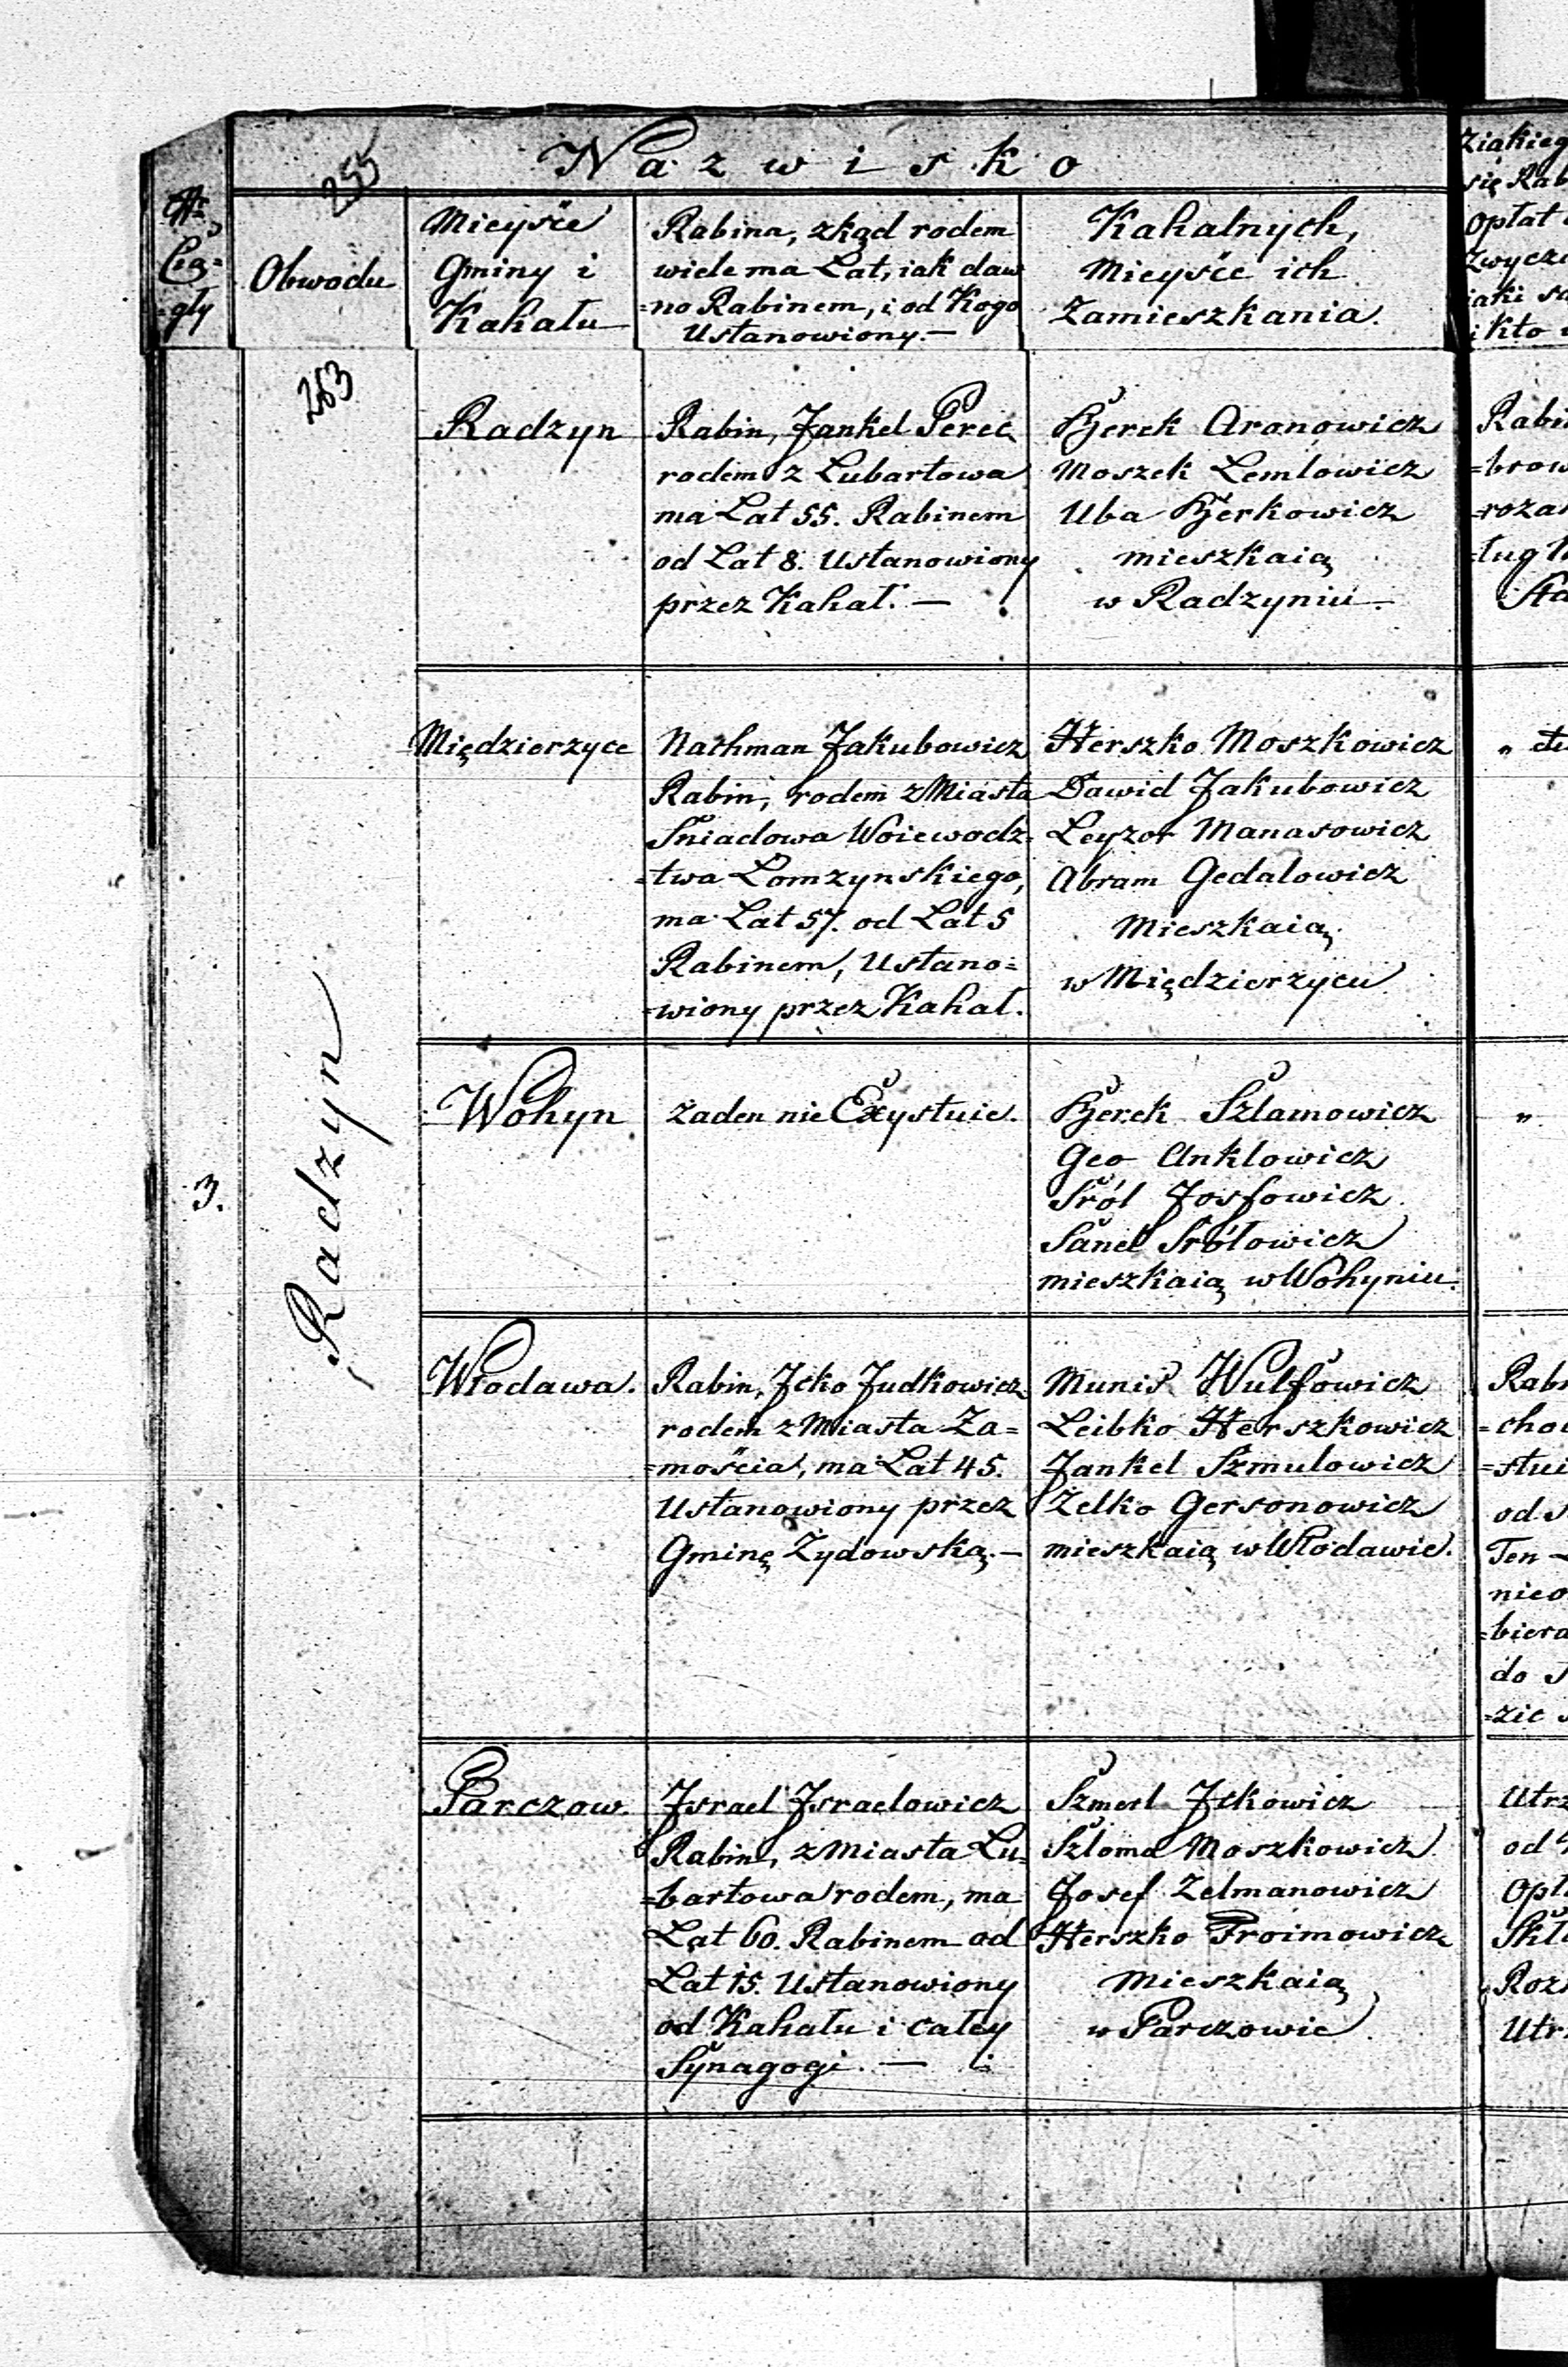 Nazwisko
255
Nr
Cią=
=gły
Obwodu
Mieysće
Gminy i
Kahału
Rabina, zkąd rodem
wiele ma Lat, iak daw
=no Rabinem, i od Kogo
Ustanowiony.—
Kahalnych,
Mieysće ich
Zamieszkania.
263
3.
Radzyn
Radzyn
Rabin, Jankel Perec
rodem z Lubartowa
ma Lat 55. Rabinem
od Lat 8. Ustanowiony
przez Kahał.—
Berek Aronowicz
Moszek Lemlowicz
Uba Berkowicz
mieszkaią
w Radzyniu.—
Międzierzyce
Nachman Jakubowicz
Rabin, rodem z Miasta
Sniadowa Woiewodz=
=twa Łomzynskiego,
ma Lat 57. od Lat 5
Rabinem, Ustano=
=wiony przez Kahał.
Herszko Moszkowicz
Dawid Jakubowicz
Leyzor Manasowicz
Abram Gedalowicz
Mieszkaią
w Międzierzycu
Wohyn
żaden nie Exystuie.
Berek Szlamowicz
Geo Anklowicz
Sról Josfowicz
Sanel Srólowicz
mieszkaią w Wohyniu.
Włodawa.
Rabin, Jcko Judkowicz
rodem z Miasta Za=
=mościa, ma Lat 45.
Ustanowiony przez
Gminę Żydowską.—
Munis Wulfowicz
Leibko Herszkowicz
Jankel Szmulowicz
Zelko Gersonowicz
mieszkaią w Włodawie.
Parczow.
Jsrael Jsraelowicz
Rabin, z Miasta Lu=
=bartowa rodem, ma
Lat 60. Rabinem od
Lat 15. Ustanowiony
od Kahału i całey
Synagogi.—
Szmerl Jckowicz
Szloma Moszkowicz
Josef Zelmanowicz
Herszko Froimowicz
Mieszkaią
w Parczowie
Opłat
iaki
i kto
=brow
od
Ten
do
od